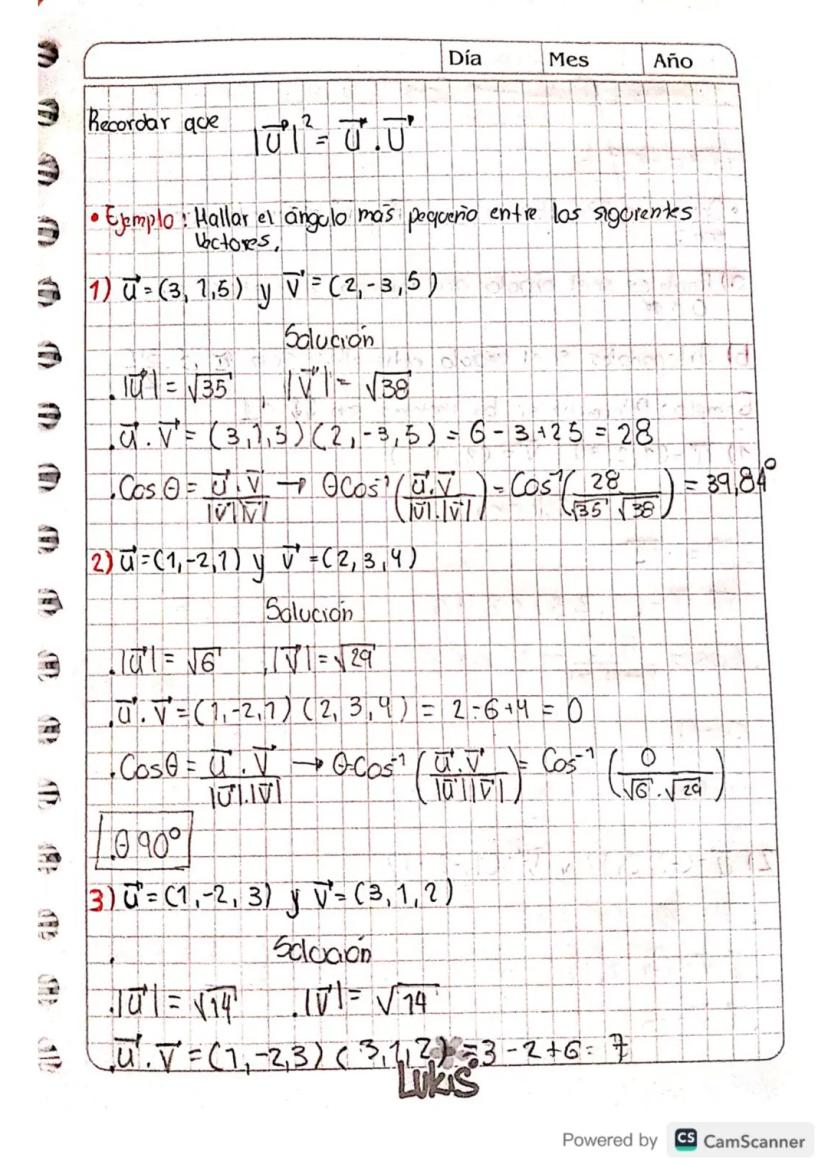 Día Mes Año
Recordar que |u⃗|² = u⃗ . u⃗
• Ejemplo: Hallar el ángulo más pequeño entre los siguientes
vectores,
1) u⃗ = (3, 1, 5) y v⃗ = (2, -3, 5)
Solución
. |u⃗| = √35 , |v⃗| = √38
. u⃗ . v⃗ = (3, 1, 5) (2, -3, 5) = 6 - 3 + 25 = 28
. Cos θ = u⃗ . v⃗ / |u⃗||v⃗| → θ Cos⁻¹ (u⃗ . v⃗ / |u⃗|.|v⃗|) = Cos⁻¹ (28 / √35 √38) = 39,84°
2) u⃗ = (1, -2, 1) y v⃗ = (2, 3, 4)
Solución
. |u⃗| = √6 , |v⃗| = √29
. u⃗ . v⃗ = (1, -2, 1) (2, 3, 4) = 2 - 6 + 4 = 0
. Cos θ = u⃗ . v⃗ / |u⃗|.|v⃗| → θ = Cos⁻¹ (u⃗ . v⃗ / |u⃗||v⃗|) = Cos⁻¹ (0 / √6 . √29)
. θ 90°
3) u⃗ = (1, -2, 3) y v⃗ = (3, 1, 2)
Solución
. |u⃗| = √14 . |v⃗| = √14
. u⃗ . v⃗ = (1, -2, 3) (3, 1, 2) = 3 - 2 + 6 = 7
LUKIS
Powered by CS CamScanner